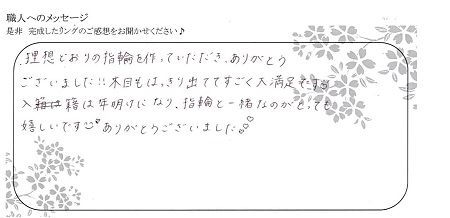 職人へのメッセージ
是非 完成したリングのご感想をお聞かせください♪
理想どおりの指輪を作っていただき、ありがとう
ございました!!木目もはっきり出ててすごく大満足です
入籍は年明けになり、指輪と一緒なのがとっても
嬉しいです ありがとうございました